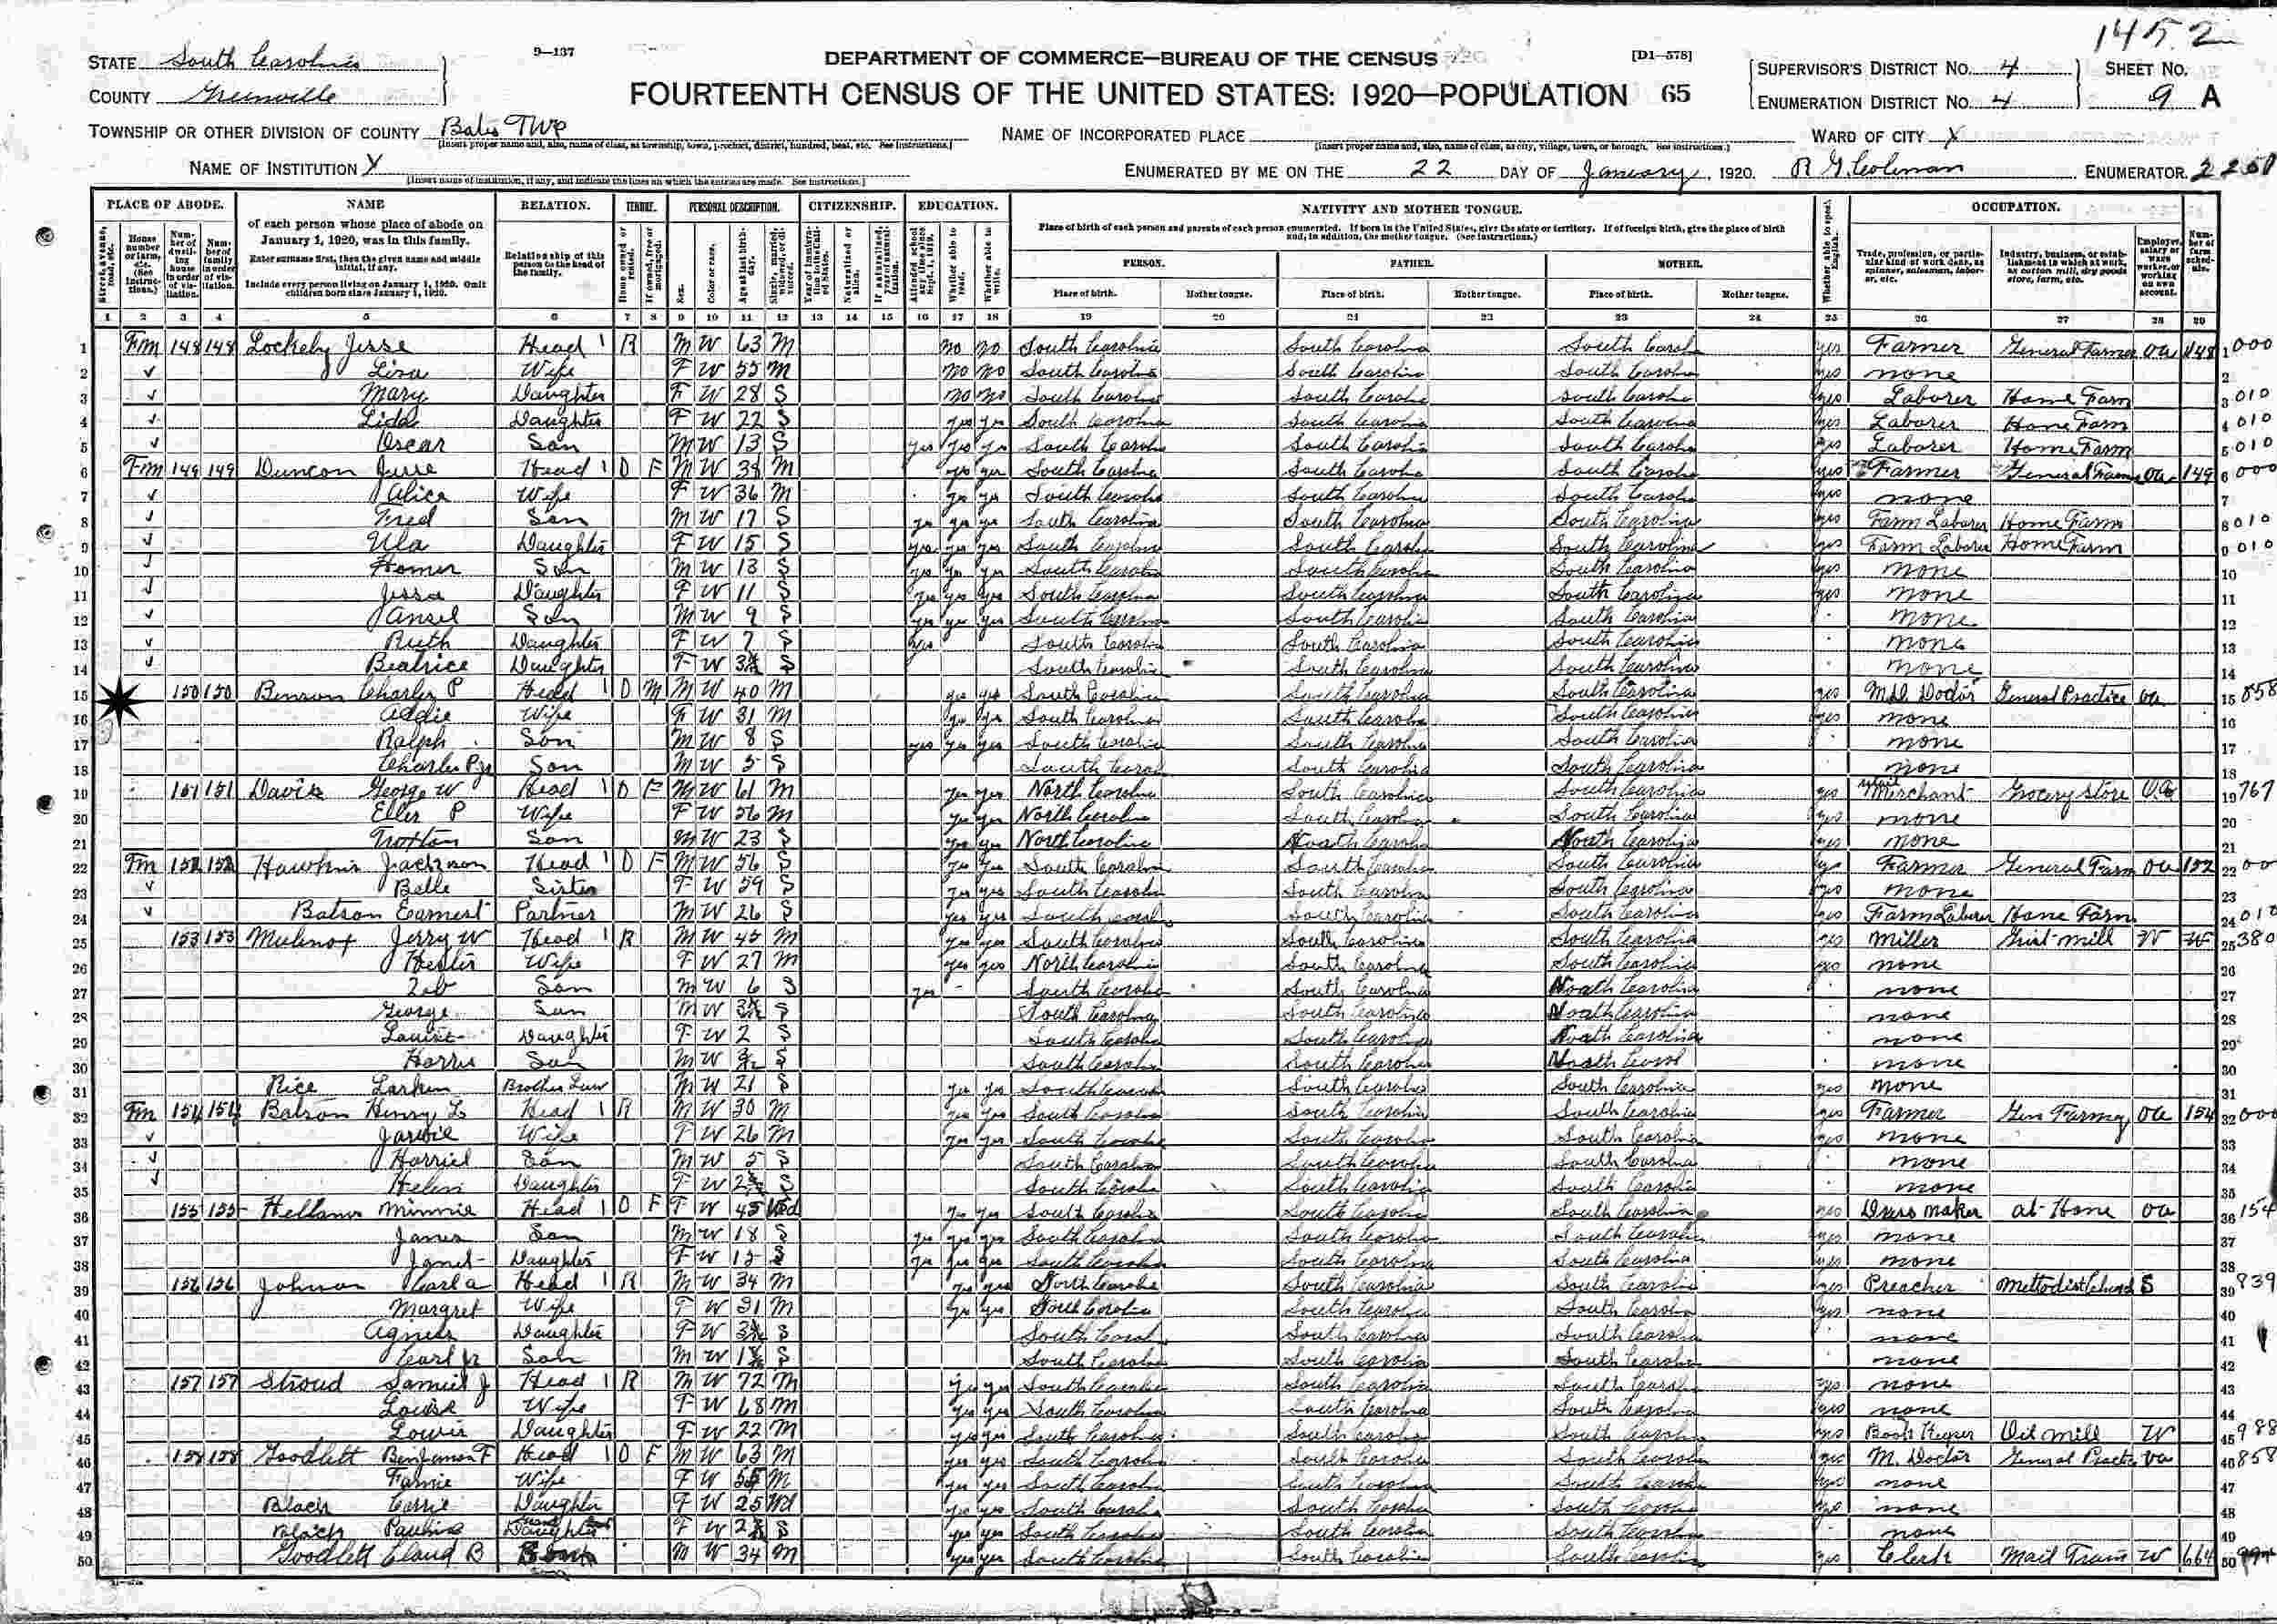 1452
STATE South Carolina
9—137
DEPARTMENT OF COMMERCE—BUREAU OF THE CENSUS
[D1—578]
SUPERVISOR'S DISTRICT No. 4
SHEET No.
COUNTY Greenville
FOURTEENTH CENSUS OF THE UNITED STATES: 1920—POPULATION 65
ENUMERATION DISTRICT No. 4
9 A
TOWNSHIP OR OTHER DIVISION OF COUNTY Bates TWP
NAME OF INCORPORATED PLACE
WARD OF CITY X
[Insert proper name and, also, name of class, as township, town, precinct, district, hundred, beat, etc. See Instructions.]
[Insert proper name and, also, name of class, as city, village, town, or borough. See instructions.]
NAME OF INSTITUTION X
ENUMERATED BY ME ON THE 22 DAY OF January, 1920. R G. Coleman ENUMERATOR. 2250
[Insert name of institution, if any, and indicate the lines on which the entries are made. See instructions.]
PLACE OF ABODE. NAME RELATION. TENURE. PERSONAL DESCRIPTION. CITIZENSHIP. EDUCATION. NATIVITY AND MOTHER TONGUE. OCCUPATION.
of each person whose place of abode on January 1, 1920, was in this family.
Enter surname first, then the given name and middle initial, if any.
Include every person living on January 1, 1920. Omit children born since January 1, 1920.
Relationship of this person to the head of the family.
Place of birth of each person and parents of each person enumerated. If born in the United States, give the state or territory. If of foreign birth, give the place of birth and, in addition, the mother tongue. (See Instructions.)
PERSON. FATHER. MOTHER.
Place of birth. Mother tongue. Place of birth. Mother tongue. Place of birth. Mother tongue.
1 2 3 4 5 6 7 8 9 10 11 12 13 14 15 16 17 18 19 20 21 22 23 24 25 26 27 28 29
1 Fm 148 148 Lockeby Jesse Head 1 R M W 63 M no no South Carolina South Carolina South Carol yes Farmer General Farmer OA 148 1 000
2 Liza Wife F W 55 M no no South Carolina South Carolina South Carolina yes none 2
3 Mary Daughter F W 28 S no no South Carolina South Carolina South Carolina yes Laborer Home Farm 3 010
4 Lida Daughter F W 22 S yes yes South Carolina South Carolina South Carolina yes Laborer Home Farm 4 010
5 Oscar Son M W 13 S yes yes yes South Carolina South Carolina South Carolina yes Laborer Home Farm 5 010
6 Fm 149 149 Duncan Jesse Head 1 O F M W 38 M yes yes South Carolina South Carolina South Carolina yes Farmer General Farm OA 149 6 000
7 Alice Wife F W 36 M yes yes South Carolina South Carolina South Carolina yes none 7
8 Fred Son M W 17 S yes yes yes South Carolina South Carolina South Carolina yes Farm Laborer Home Farm 8 010
9 Ula Daughter F W 15 S yes yes yes South Carolina South Carolina South Carolina yes Farm Laborer Home Farm 9 010
10 Homer Son M W 13 S yes yes yes South Carolina South Carolina South Carolina yes none 10
11 Jessa Daughter F W 11 S yes yes yes South Carolina South Carolina South Carolina yes none 11
12 Ansel Son M W 9 S yes yes yes South Carolina South Carolina South Carolina none 12
13 Ruth Daughter F W 7 S yes South Carolina South Carolina South Carolina none 13
14 Beatrice Daughter F W S South Carolina South Carolina South Carolina none 14
15 150 150 Benson Charley P Head 1 O M M W 40 M yes yes South Carolina South Carolina South Carolina yes M.D. Doctor General Practice OA 15 858
16 Addie Wife F W 31 M yes yes South Carolina South Carolina South Carolina yes none 16
17 Ralph Son M W 8 S yes yes yes South Carolina South Carolina South Carolina none 17
18 Charles P Jr Son M W 5 S South Carol South Carolina South Carolina none 18
19 151 151 Davis George W Head 1 O F M W 61 M yes yes North Carolina South Carolina South Carolina yes Merchant Grocery Store OA 19 767
20 Eller P Wife F W 56 M yes yes North Carolina South Carolina South Carolina yes none 20
21 Son M W 23 S yes yes North Carolina North Carolina North Carolina yes none 21
22 Fm 152 152 Hawkins Jackson Head 1 O F M W 56 S yes yes South Carolina South Carolina South Carolina yes Farmer General Farm OA 152 22 00
23 Belle Sister F W 59 S yes yes South Carolina South Carolina South Carolina yes none 23
24 Batson Earnest Partner M W 26 S yes yes South Carol South Carolina South Carolina yes Farm Laborer Home Farm 24 010
25 153 153 Jerry W Head 1 R M W 45 M yes yes South Carolina South Carolina South Carolina yes Miller Grist mill W 25 380
26 Hester Wife F W 27 M yes yes North Carolina South Carolina South Carolina yes none 26
27 Zeb Son M W 6 S yes South Carolina South Carolina North Carolina none 27
28 George Son M W S South Carolina South Carolina North Carolina none 28
29 Louise Daughter F W 2 S South Carolina South Carolina North Carolina none 29
30 Harris Son M W S South Carolina South Carolina North Carol none 30
31 Rice Larken Brother Law M W 21 S yes yes South Carolina South Carolina South Carolina yes none 31
32 Fm 154 154 Batson Henry L Head 1 R M W 30 M yes yes South Carolina South Carolina South Carolina yes Farmer Gen Farmg OA 154 32 000
33 Wife F W 26 M yes yes South Carolina South Carolina South Carolina yes none 33
34 Harriel Son M W 5 S South Carolina South Carolina South Carolina none 34
35 Helen Daughter F W S South Carolina South Carolina South Carolina none 35
36 155 155 Hellams Minnie Head 1 O F F W 45 Wd yes yes South Carolina South Carolina South Carolina yes Dress maker at Home OA 36 154
37 James Son M W 18 S yes yes yes South Carolina South Carolina South Carolina yes none 37
38 Janet Daughter F W S yes yes yes South Carolina South Carolina South Carolina yes none 38
39 156 156 Johnson Carl A Head 1 R M W 34 M yes yes North Carolina South Carolina South Carolina yes Preacher Methodist Church S 39 839
40 Margret Wife F W 31 M yes yes South Carolina South Carolina South Carolina yes none 40
41 Agnes Daughter F W S South Carol South Carolina South Carolina none 41
42 Carl Jr Son M W S South Carolina South Carolina South Carolina none 42
43 157 157 Stroud Samuel J Head 1 R M W 72 M yes yes South Carolina South Carolina South Carolina yes none 43
44 Louise Wife F W 68 M yes yes South Carolina South Carolina South Carolina yes none 44
45 Daughter F W 22 M yes yes South Carolina South Carolina South Carolina yes Book Keeper Oil mill W 45 988
46 158 158 Goodlett Benjamon F Head 1 O F M W 63 M yes yes South Carolina South Carolina South Carolina yes M. Doctor General Practice OA 46 858
47 Fannie Wife F W 55 M yes yes South Carolina South Carolina South Carolina yes none 47
48 Black Carrie Daughter F W 25 Wd yes yes South Carolina South Carolina South Carolina yes none 48
49 Black Pauline Daughter F W S yes yes South Carolina South Carolina South Carolina none 49
50 Goodlett Claud B M W 34 M yes yes South Carolina South Carolina South Carolina yes Clerk Mail Train W 664 50